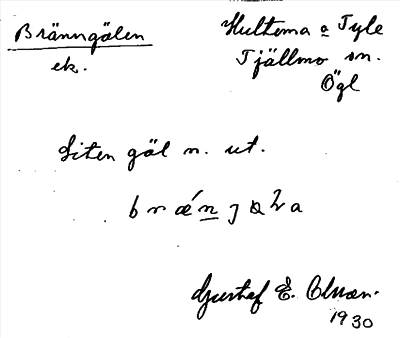 Bränngälen
ek.
Hultema o Tyle
Tjällmo sn.
Ögl
Liten göl n. ut.
Gustaf E. Olsson.
1930